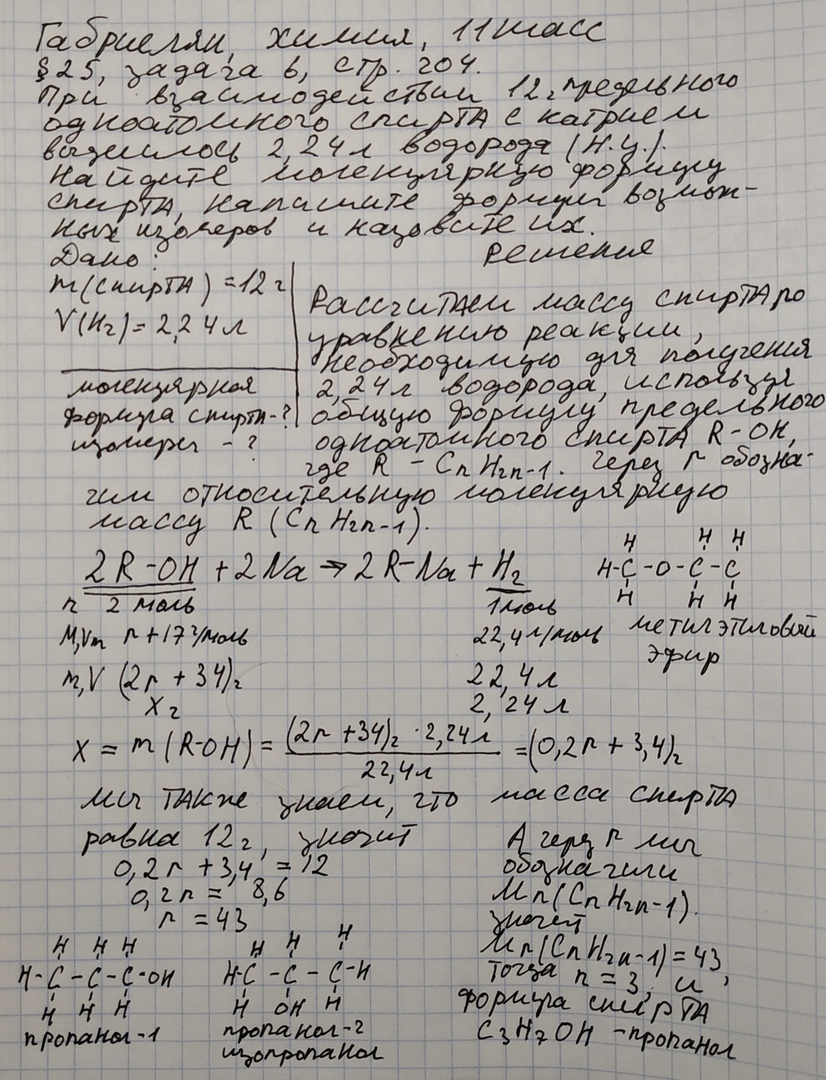 Габриелян, химия, 11 класс
§ 25, задача 6, стр. 204.
При взаимодействии 12 г предельного
одноатомного спирта с натрием
выделилось 2,24 л водорода (н.у.).
Найдите молекулярную формулу
спирта, напишите формулы возмож-
ных изомеров и назовите их.
Дано:
m(спирта) = 12 г
V(H₂) = 2,24 л
молекулярная
формула спирта - ?
изомеры - ?
Решение
Рассчитаем массу спирта по
уравнению реакции,
необходимую для получения
2,24 л водорода, используя
общую формулу предельного
одноатомного спирта R-OH,
где R - CnH2n-1. Через r обозна-
чим относительную молекулярную
массу R (CnH2n-1).
2R-OH + 2Na → 2R-Na + H₂
n 2 моль 1 моль
M,Vm r+17 г/моль 22,4 л/моль
m,V (2r + 34) г 22,4 л
x г 2,24 л
H H H
H-C-O-C-C
H H H
метилэтиловый
эфир
x = m(R-OH) = (2r+34)г · 2,24л / 22,4л = (0,2r + 3,4) г
Мы также знаем, что масса спирта
равна 12 г, значит
0,2r + 3,4 = 12
0,2r = 8,6
r = 43
А через r мы
обозначили
Mr(CnH2n-1).
значит
Mr(CnH2n-1) = 43,
тогда n = 3, и
формула спирта
C₃H₇OH - пропанол
H H H
H-C-C-C-OH
H H H
пропанол-1
H H H
HC-C-C-H
H OH H
пропанол-2
изопропанол